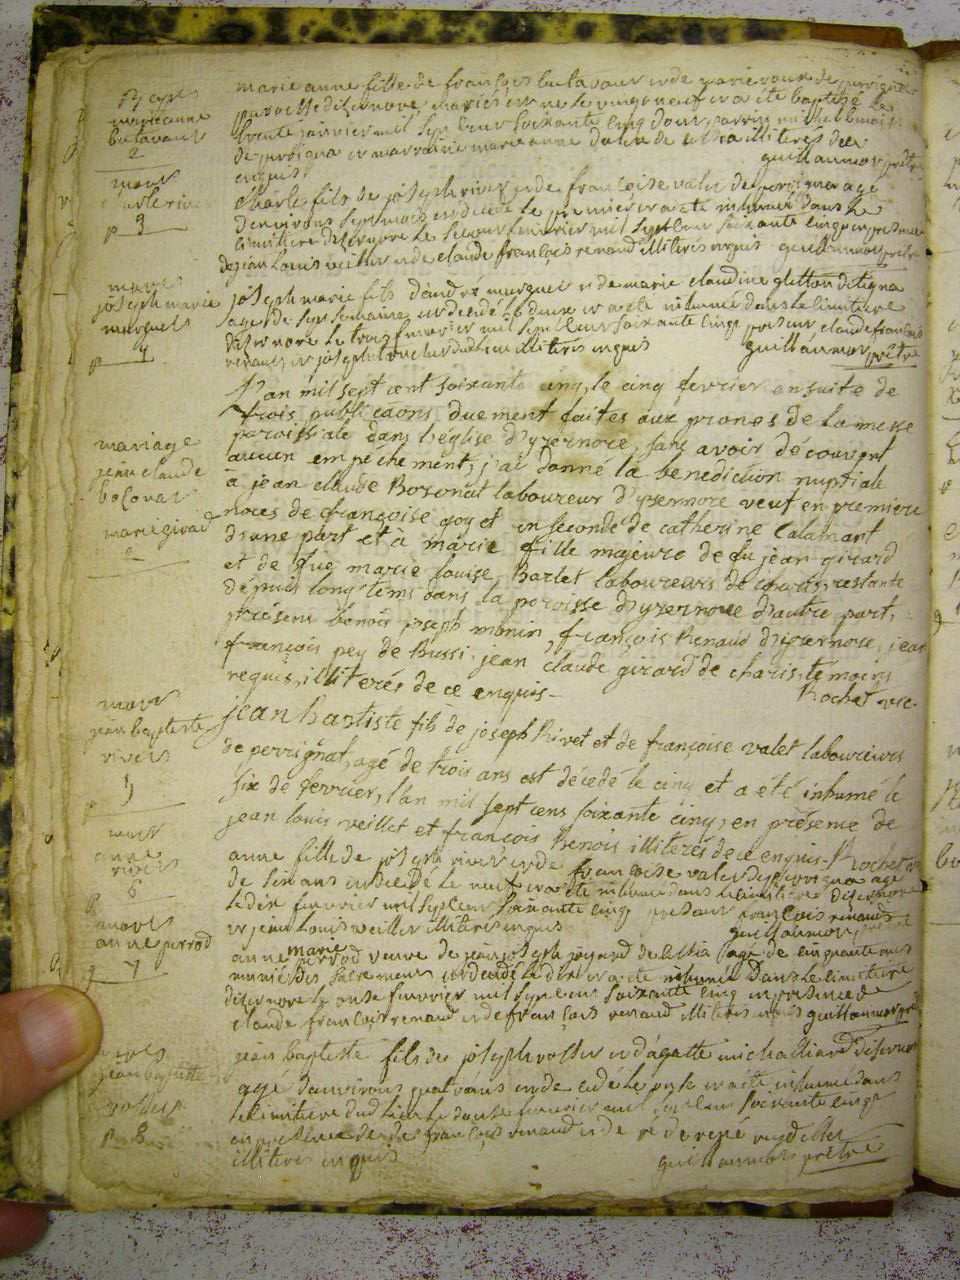 marie anne fille de françois butavaux et de marie roux de perrignat
paroisse disernore mariés est né le vingt neuf et a été baptisé le
trente janvier mil sept cent soixante cinq
de perrigna et marraine marie anne illiterés de ce
enquis guillaumot prêtre
mort
charle rive
p 3
Charle fils de joseph rivet et de francoise valet de perrigna agé
denviron sept mois est decedé le premier et a été inhumé dans le
cimitiere disernore le second fevrier mil sept cent soixante cinq en presence
de jean louis veillet et de claude françois renaud illiterés enquis guillaumot prêtre
joseph marie
murguet
p 4
joseph marie fils d'andré murguet et de marie claudine
agé de sept semaines est decedé le deux et a été inhumé dans le cimitiere
disernore le trois fevrier mil sept cent soixante cinq present claude francois
renaud et joseph illiterés enquis guillaumot prêtre
mariage
jean claude
bosonat
marie girard
2
L'an mil sept cent soixante cinq, le cinq fevrier ensuite de
trois publicaons duement faites aux prones de la messe
paroissiale dans l'église d'yzernore, sans avoir découvert
aucun empechement, j'ai donné la benediction nuptiale
à jean claude Bosonat laboureur d'yzernore veuf en premiere
noces de françoise goy et en seconde de catherine Calamant
d'une part et a marie fille majeure de fu jean girard
et de fue marie louise Barlet laboureurs de charis, restante
depuis long tems dans la paroisse d'yzernore d'autre part,
présens benoit joseph monin, françois Renaud d'yzernore, jean
françois pey de Bussi, jean claude girard de charis, temoins
requis, illiterés de ce enquis - Rochet vic.
mort
jean baptiste
rivet
5
jean baptiste fils de joseph Rivet et de françoise valet laboureurs
de perrignat, agé de trois ans est décedé le cinq et a été inhumé le
six de fevrier, l'an mil sept cens soixante cinq, en présence de
jean louis veillet et françois Benoit illiterés de ce enquis - Rochet vic
mort
anne
rivet
6
anne fille de joseph rivet et de francoise valet de perrigna agé
de six ans est decedé le neuf et a été inhumé dans le cimitiere disernore
le dix fevrier mil sept cent soixante cinq present francois renaud
et jean louis veillet illiterés enquis guillaumot prêtre
mort
anne perrod
p 7
anne marie perrod veuve de jean joseph joyard de agé de cinquante ans
munie des sacremens est decedé le dix et a été inhumée dans le cimitiere
disernore le onze fevrier mil sept cent soixante cinq en presence de
claude francois renaud et de françois renaud illiterés enquis guillaumot prêtre
mort
jean baptiste
p 8
jean baptiste fils de joseph et d'agatte michaillard disernore
agé denviron quatre ans est decedé le onze et a été inhumé dans
le cimitiere dudit lieu le douze fevrier mil sept cent soixante cinq
en presence de françois renaud et de
illiterés enquis guillaumot prêtre